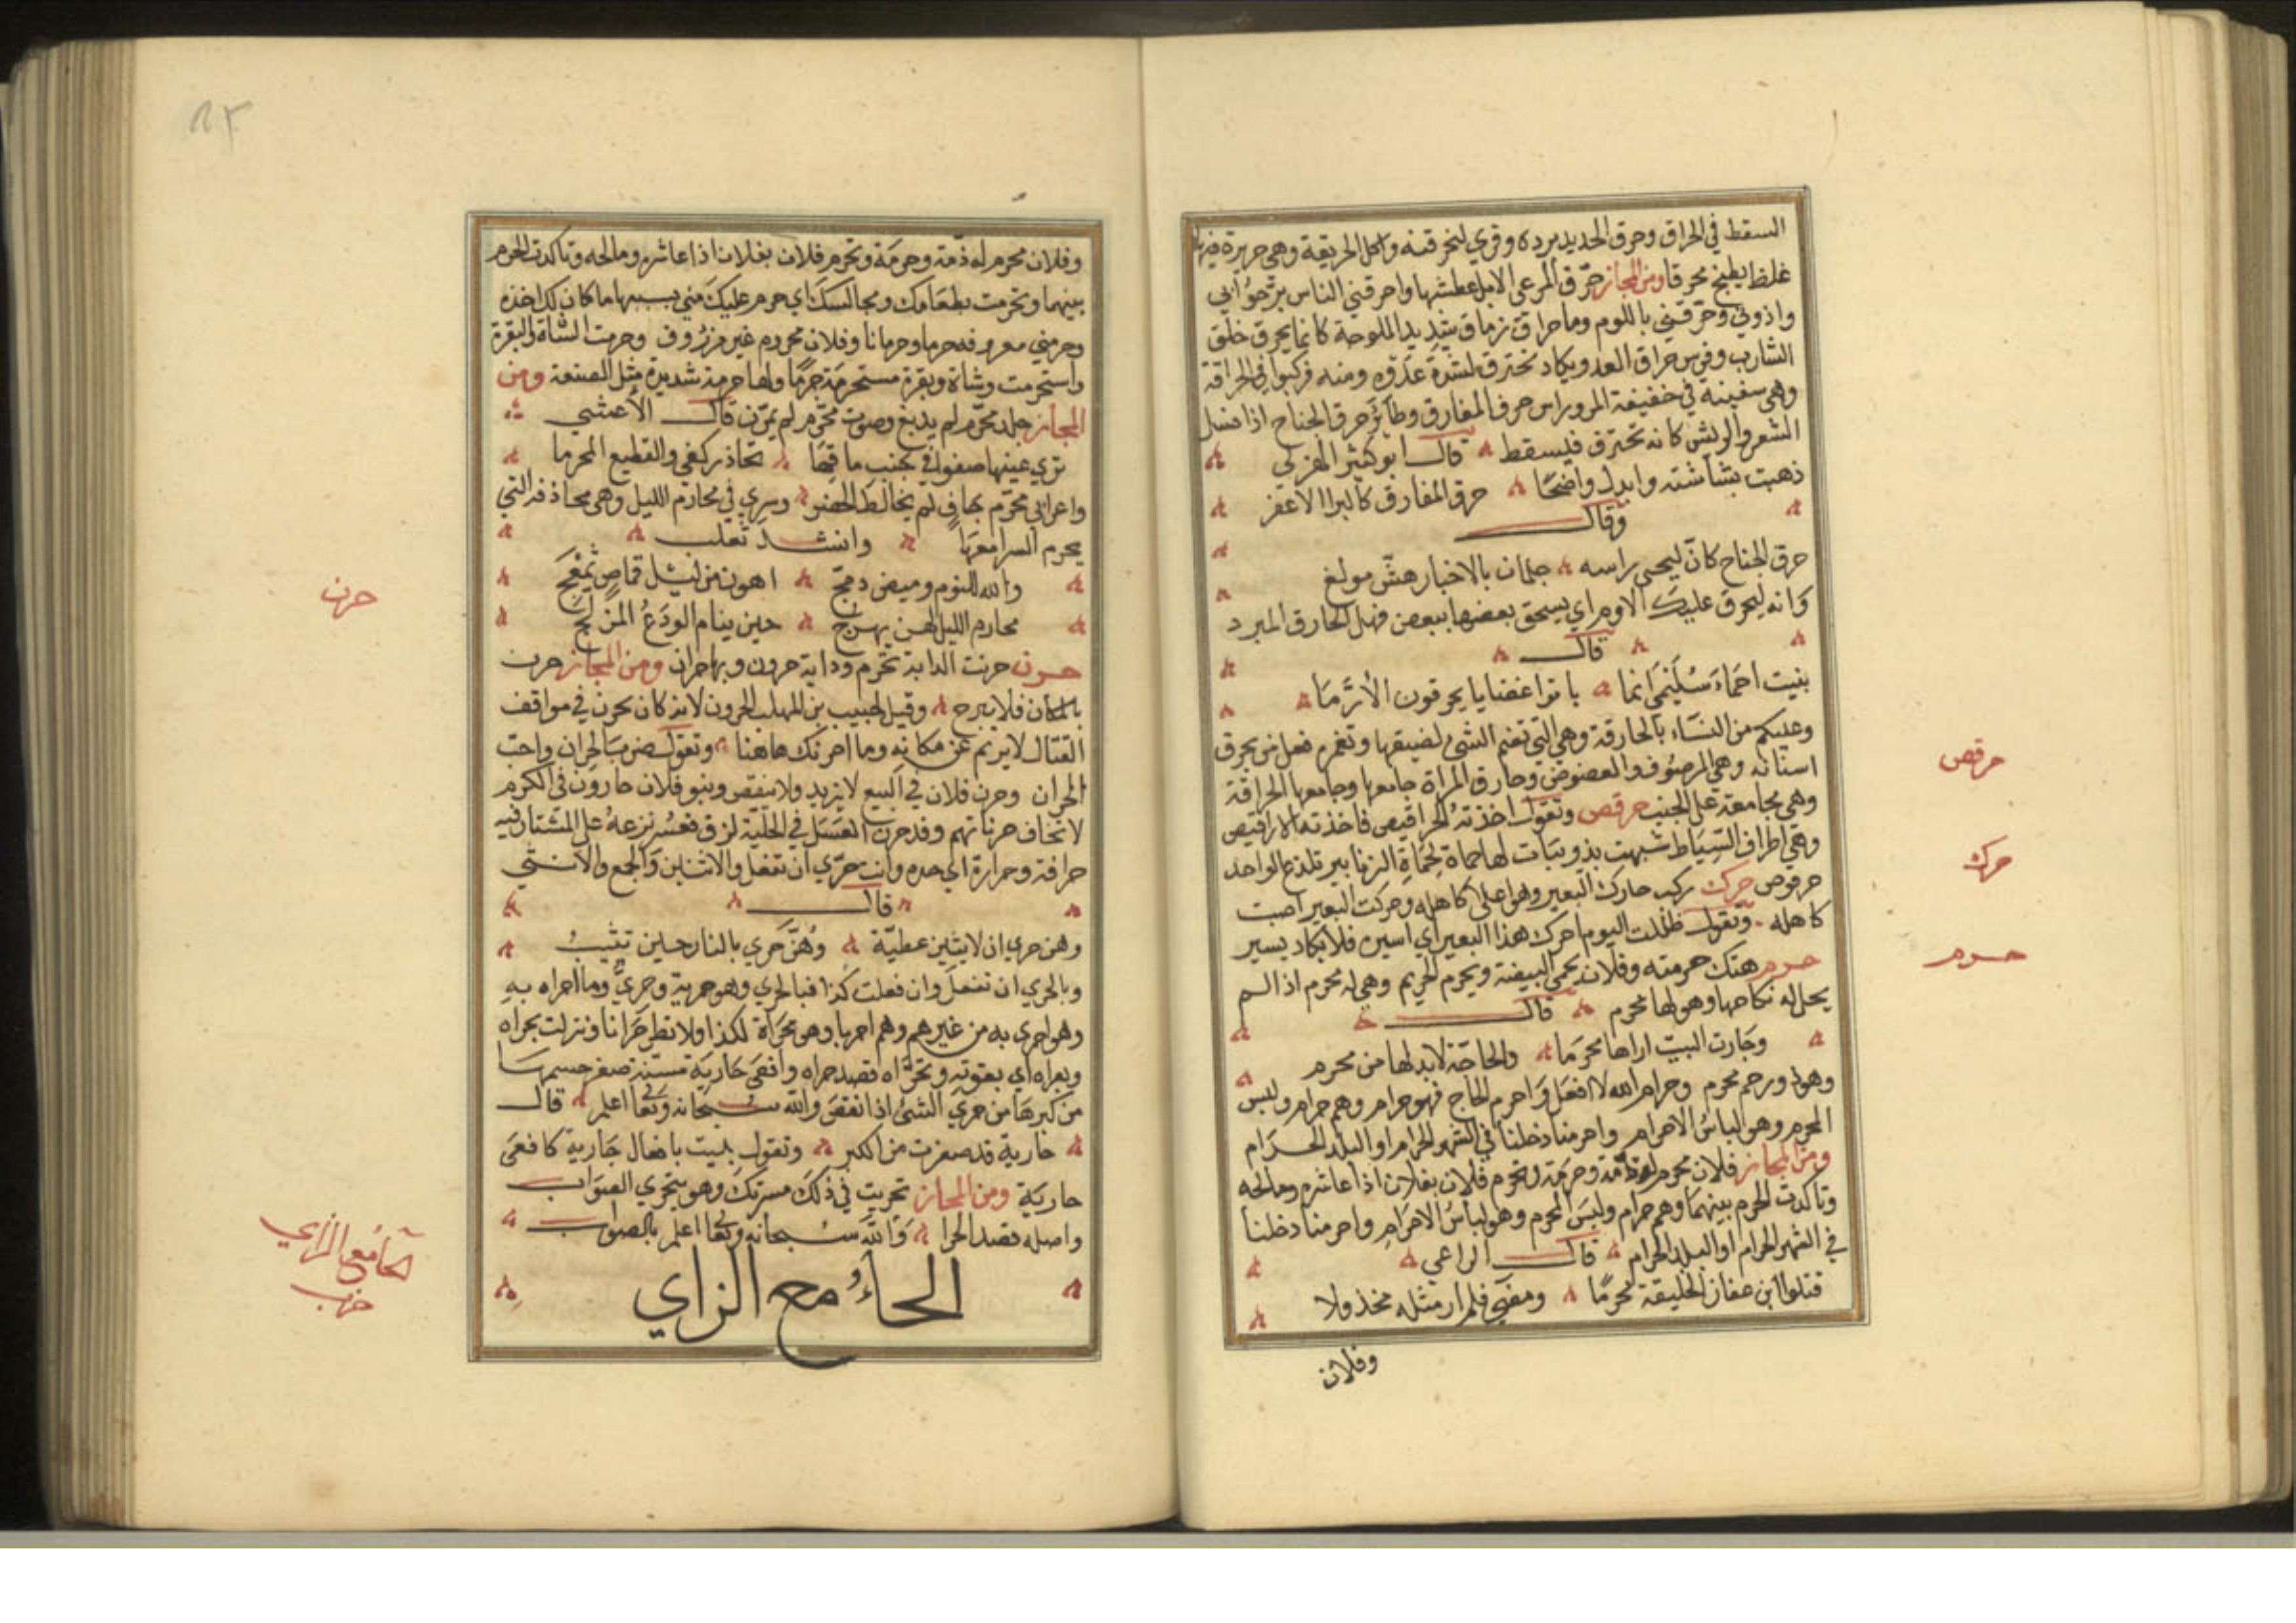 السقط في الحراق وحرق الحديد برده وقري لنحرقنه واكل الحريقة وهي حريرة فيها
غلظ يطبخ محرقا ومن المجاز حرق المرعى الابل عطشها واحرقني الناس برحوا بي
واذوني وحرقني باللوم وما حراق زعاق شديد الملوحة كانما يحرق حلق
الشارب وفرس حراق العدو يكاد تحترق لشدة عدوه ومنه فركبوا في الحراقة
وهي سفينة في خفيفة المر وراس حرق المفارق وطائر حرق الجناح اذا نسل
الشعر والريش كانه تحترق فيسقط قال ابو كثير الهزلي
ذهبت بشاشته وابدل واضحا حرق المفارق كالبرا الاعفز
وقال
حرق الجناح كان لحيى راسه جلمان بالاخبار هش مولغ
وانه ليحرق عليك الاوم اي يسحق بعضها ببعض فهل الحارق المبرد
قال
بنيت احماء سليمى انما باتوا غضابا يحرقون الارما
وعليكم من النساء بالحارقة وهي التي تضم الشئ لضيقها وتغمز فعل من يحرق
اسنانه وهي الرصوف والعضوض وحارق المراة جامعها وجامعها الحرافة
وهي مجامعة على الجنب حرقص وتقول اخذته الحراقيص فاخذته الاراقيص
وهي اطراف السياط شبهت بذويبات لها حماة كحماة الزنابير تلدغ الواحد
حرقوص حرك ركب حارك البعير وهو اعلى كاهله وحركت البعير اصبت
كاهله وتقول ظللت اليوم احرك هذا البعير اي اسيره فلا يكاد يسير
حرم هتك حرمته وفلان يحمي البيضة ويحرم الحريم وهي له محرم اذا لم
يحل له نكاحها وهو لها محرم قال
وجارت البيت اراها محرما والحاجة لا بد لها من محرم
وهو ذو رحم محرم وحرام الله لا افعل واحرم الحاج فهو حرام وهم حرام ولبس
المحرم وهو لباس الاحرام واحرمنا دخلنا في الشهر الحرام او البلد الحرام
ومن المجاز فلان محرم له ذمة وحرمة وتحرم فلان بفلان اذا عاشره ومالحه
وتاكدت الحرم بينهما وهم حرام ولبس المحرم وهو لباس الاحرام واحرمنا دخلنا
في الشهر الحرام او البلد الحرام قال الراعي
قتلوا ابن عفان الخليفة محرما ومضى فلم ار مثله مخذولا
وفلان
حرقص
حرك
حرم
وفلان محرم له ذمة وحرمة وتحرم فلان بفلان اذا عاشره ومالحه وتاكدت الحرم
بينهما وتحرمت بطعامك ومجالسك اي حرم عليك مني بسببها ما كان لك اخذه
وحرمني معروفه حرما وحرمانا وفلان محروم غير مرزوق وحرمت الشاة والبقرة
واستحرمت وشاة وبقرة مستحرمة حرما ولها حرمة شديرة مثل الضبعة ومن
المجاز جلد محرم لم يدبغ وصوت محرم لم يمرن قال الاعشى
تري عينها صغوا في جنب ماقها تحاذر كفي والقطيع المحرما
واعرابي محرم جاف لم يخالط الحضر وسري في محارم الليل وهي مخاوفه التي
يحرم السرا معها وانشد ثعلب
والله للنوم وبيض دمج اهون من ليل قلاص تمعج
محارم الليل لهن بهرج حين ينام الودع المزلج
حرن حرنت الدابة تحرم ودابة حرون وبها حران ومن المجاز حرن
بالمكان فلا يبرح وقيل لحبيب بن المهلب الحرون لانه كان يحرن في مواقف
القتال لا يريم عن مكانه وما احرنك هاهنا وتقول ضرب بالجران واحب
الحران وحرن فلان في البيع لا يزيد ولا ينقص وبنو فلان حارون في الكرم
لا تخاف حرناتهم وقد حرن العسل في الخلية لزق فعسر نزعه على المشتار فيه
حرافة وحرارة اي حده وانت حري ان تفعل والاثنان والجمع والانثى
قال
وهن حري ان لا يثبن عطية وهن حري بالنار حين تثيب
وبالحري ان تفعل وان فعلت كذا فبالحري وهو حري به وحري وما احراه به
وهو احرى به من غيره وهم احريا وهو محراة لكذا ولا تطر حرانا ونزلت بحراه
وبعراه اي بعقوته وتحراه قصد حراه وافعى حارية مسنة صغر جسمها
من كبرها من حري الشئ اذا نقص والله سبحانه وتعا اعلم قال
حارية قد صغرت من الكبر وتقول بليت بافعال جارية كافعى
حارية ومن المجاز تحريت في ذلك مسرتك وهو يتحرى الصواب
واصله قصد الحرا والله سبحانه وتعا اعلم بالصواب
الحاء مع الزاي
حرن
الحا مع الزاي
حزب